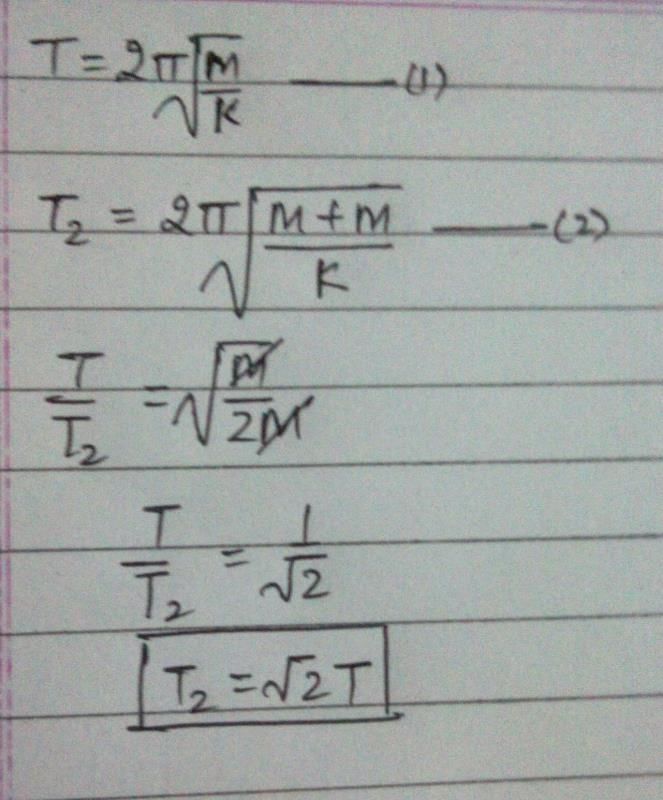 T = 2π√(m/K) —— (1)
T₂ = 2π√((m + m)/K) —— (2)
T/T₂ = √(m/2m)
T/T₂ = 1/√2
T₂ = √2 T